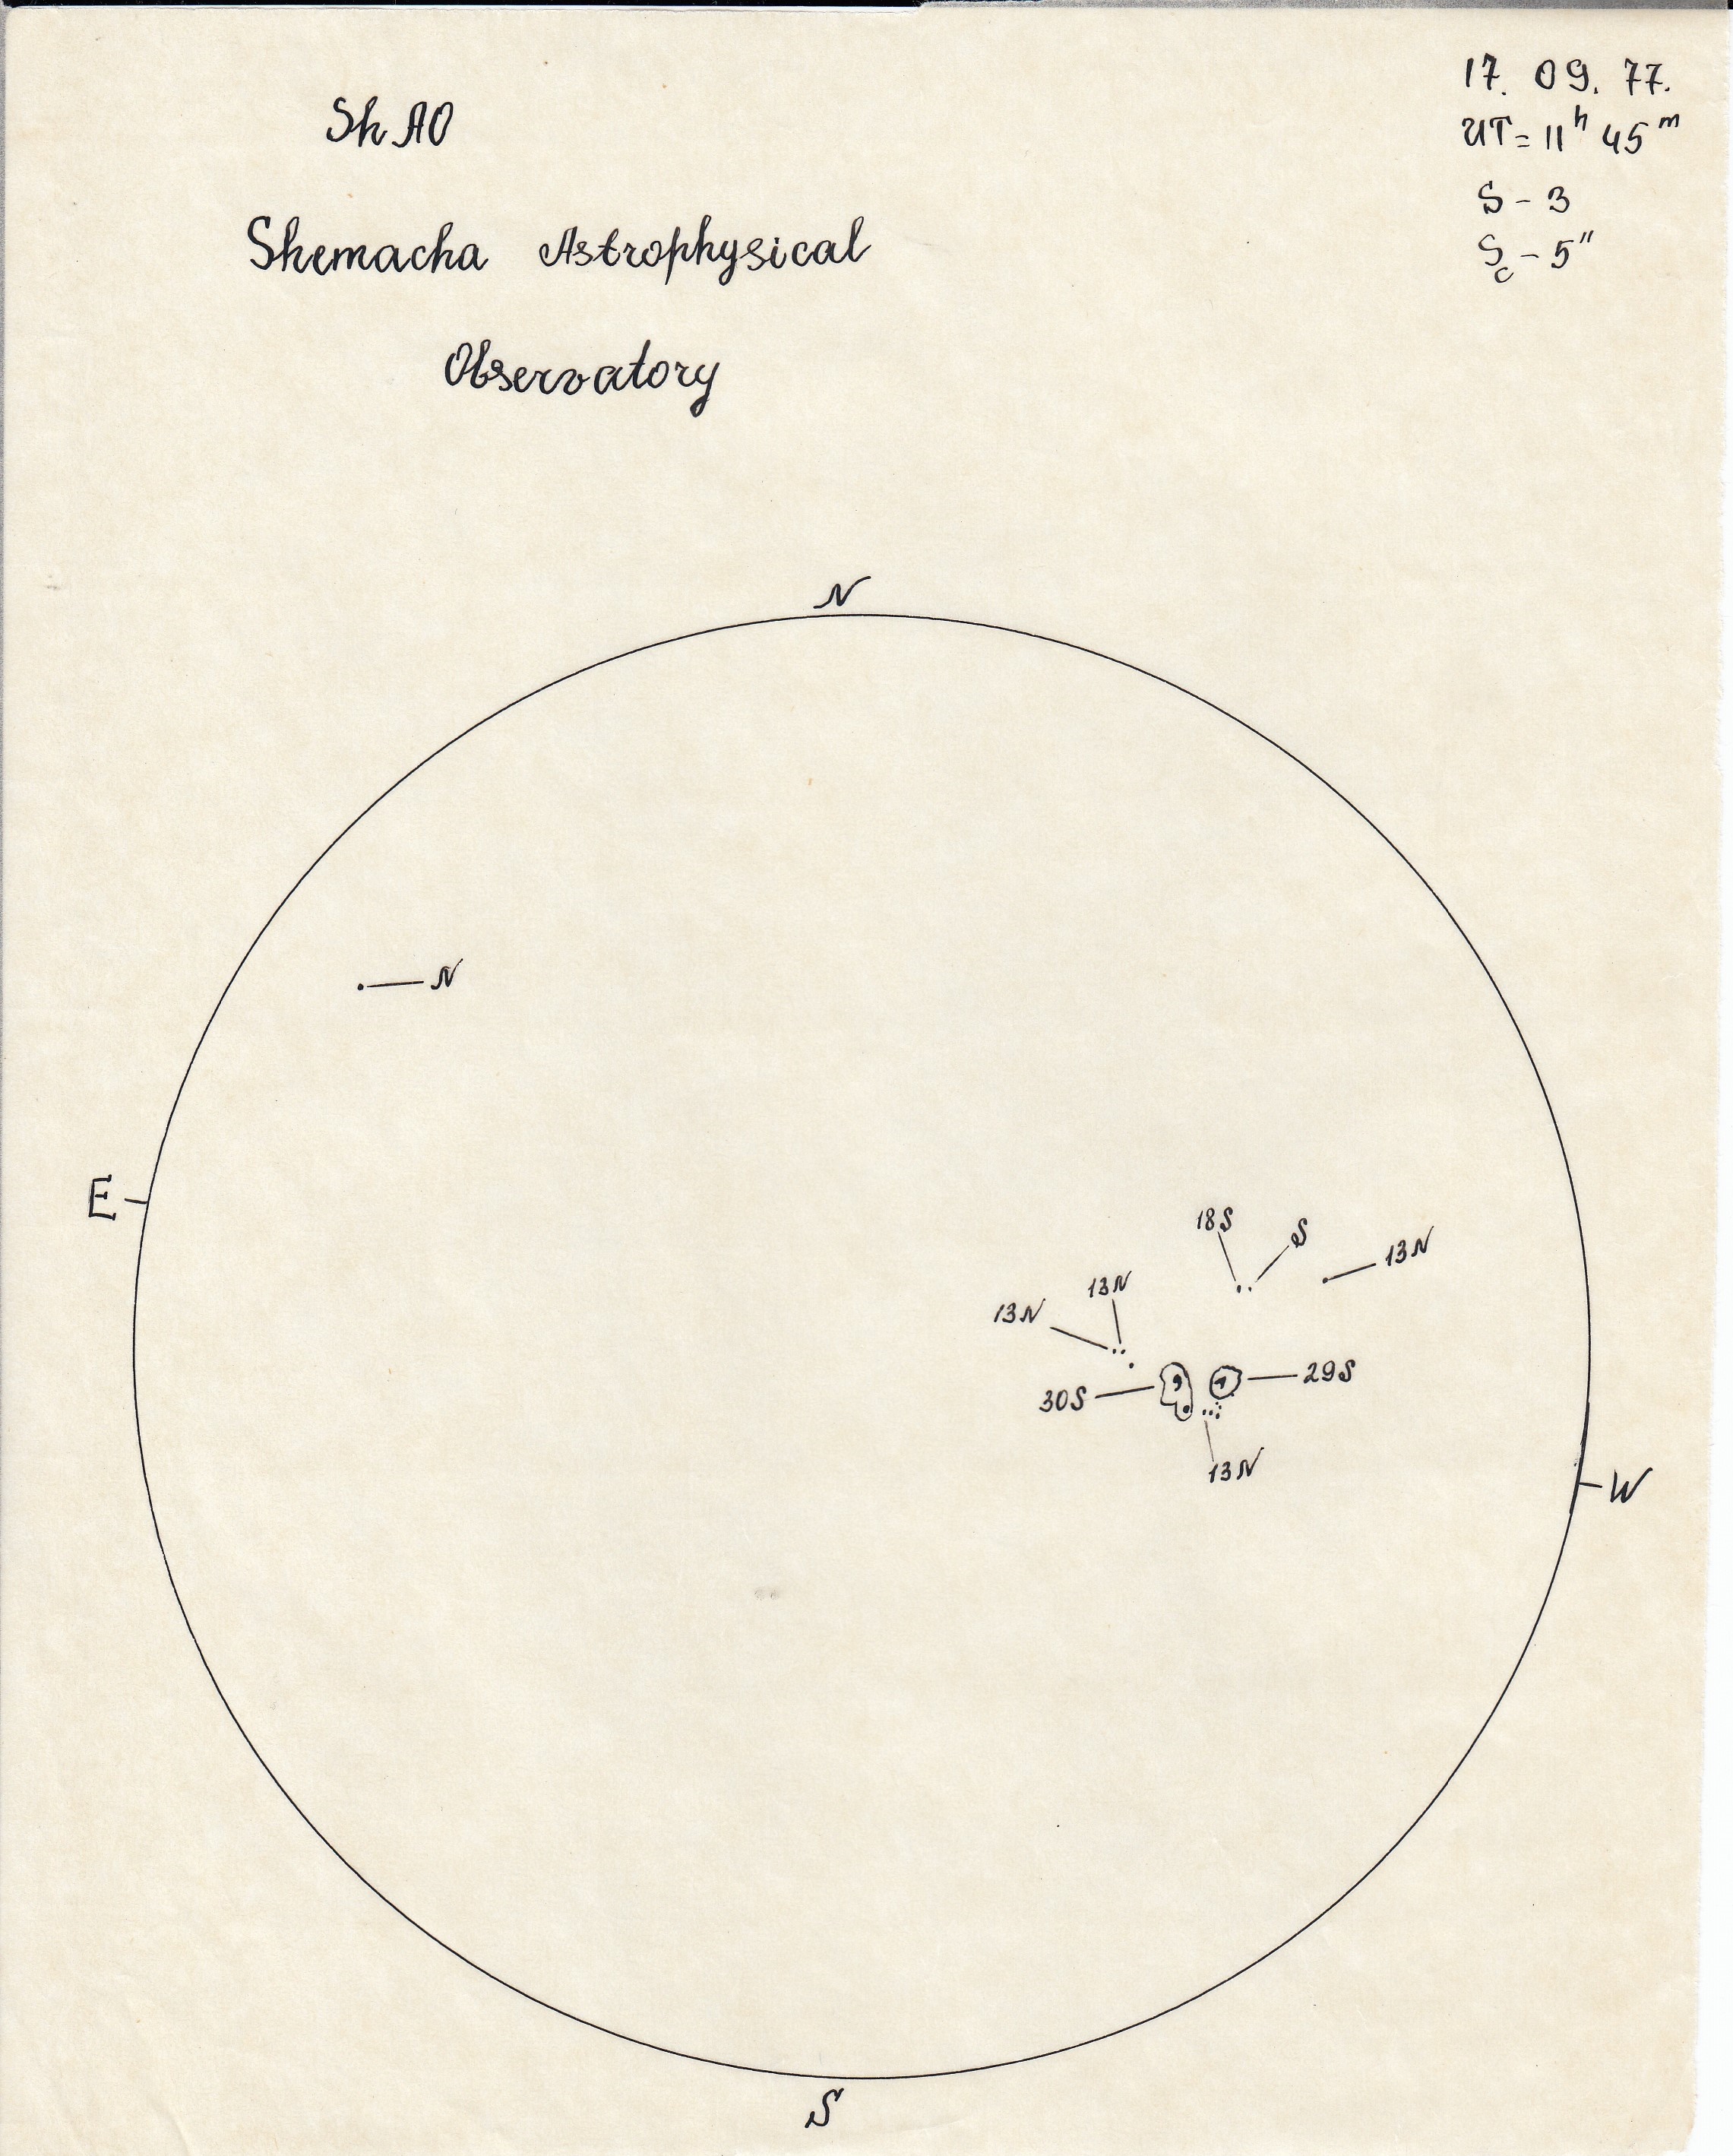 Sh AO
Shemacha Astrophysical
Observatory
17. 09. 77.
UT = 11h 45m
S - 3
Sc - 5"
N
N
E
18S
S
13N
13N
13N
30S
29S
13N
W
S